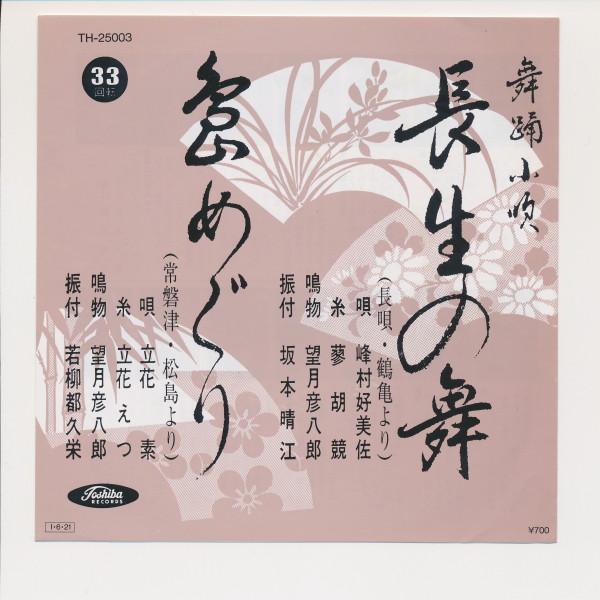 TH-25003
33
回転
舞踊小唄
長生の舞
(長唄・鶴亀より)
唄 峰村好美佐
糸 蓼胡競
鳴物 望月彦八郎
振付 坂本晴江
島めぐり
(常磐津・松島より)
唄 立花素
糸 立花えつ
鳴物 望月彦八郎
振付 若柳都久栄
Toshiba
RECORDS
I・6・21
¥700